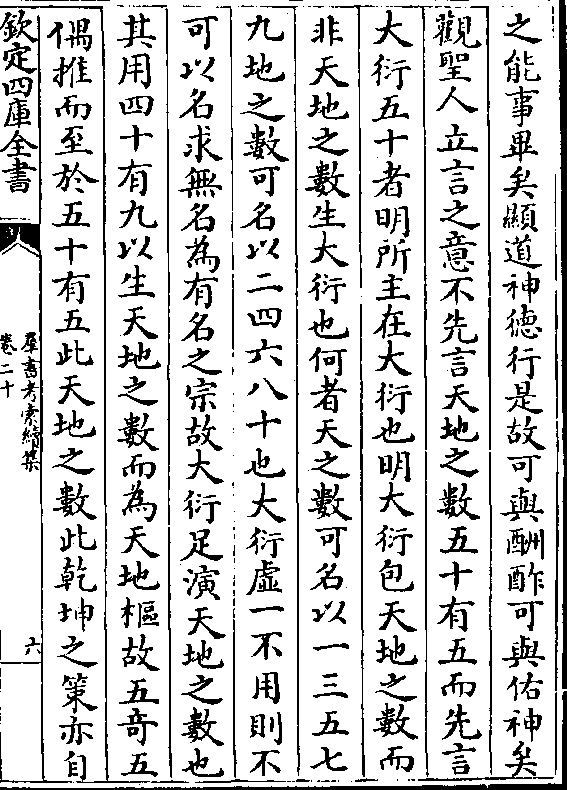 之能事畢矣顯道神德行是故可與酬酢可與佑神矣
觀聖人立言之意不先言天地之數五十有五而先言
大衍五十者明所主在大衍也明大衍包天地之數而
非天地之數生大衍也何者天之數可名以一三五七
九地之數可名以二四六八十也大衍虛一不用則不
可以名求無名為有名之宗故大衍足演天地之數也
其用四十有九以生天地之數而為天地樞故五奇五
偶推而至於五十有五此天地之數此乾坤之策亦自
欽定四庫全書
羣書考索續集
卷二十
六